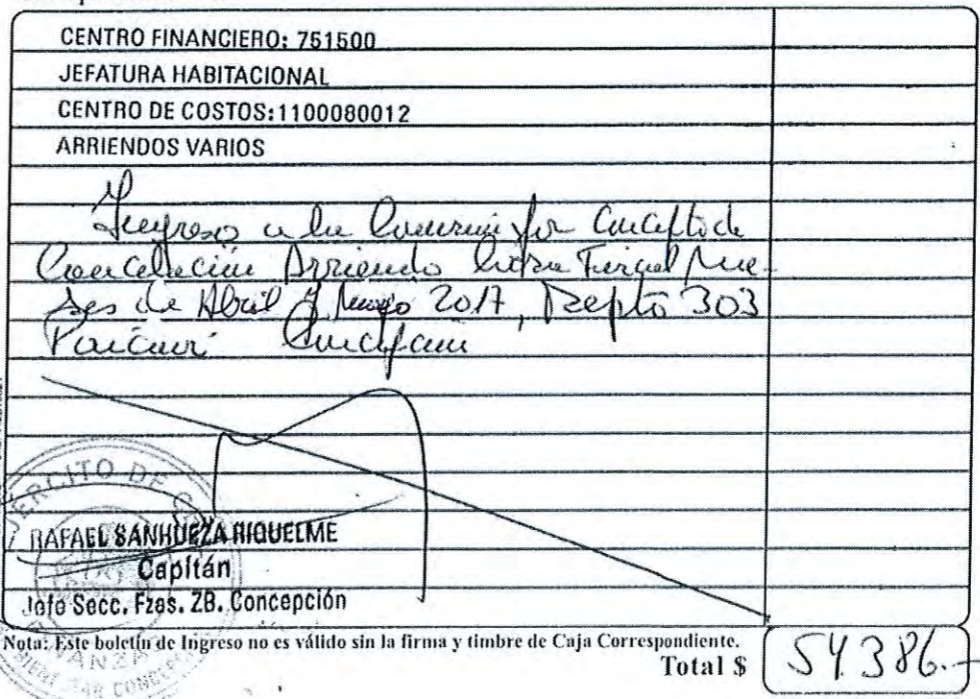 CENTRO FINANCIERO: 751500
JEFATURA HABITACIONAL
CENTRO DE COSTOS:1100080012
ARRIENDOS VARIOS
Ingreso a la por Concepto de
Cancelación Arriendo Me-
ses de Abril y Mayo 2017, Depto 303
EJERCITO DE
RAFAEL SANHUEZA RIQUELME
Capitán
Jefe Secc. Fzas. ZB. Concepción
Nota: Este boletín de Ingreso no es válido sin la firma y timbre de Caja Correspondiente.
Total $ 54.386.-